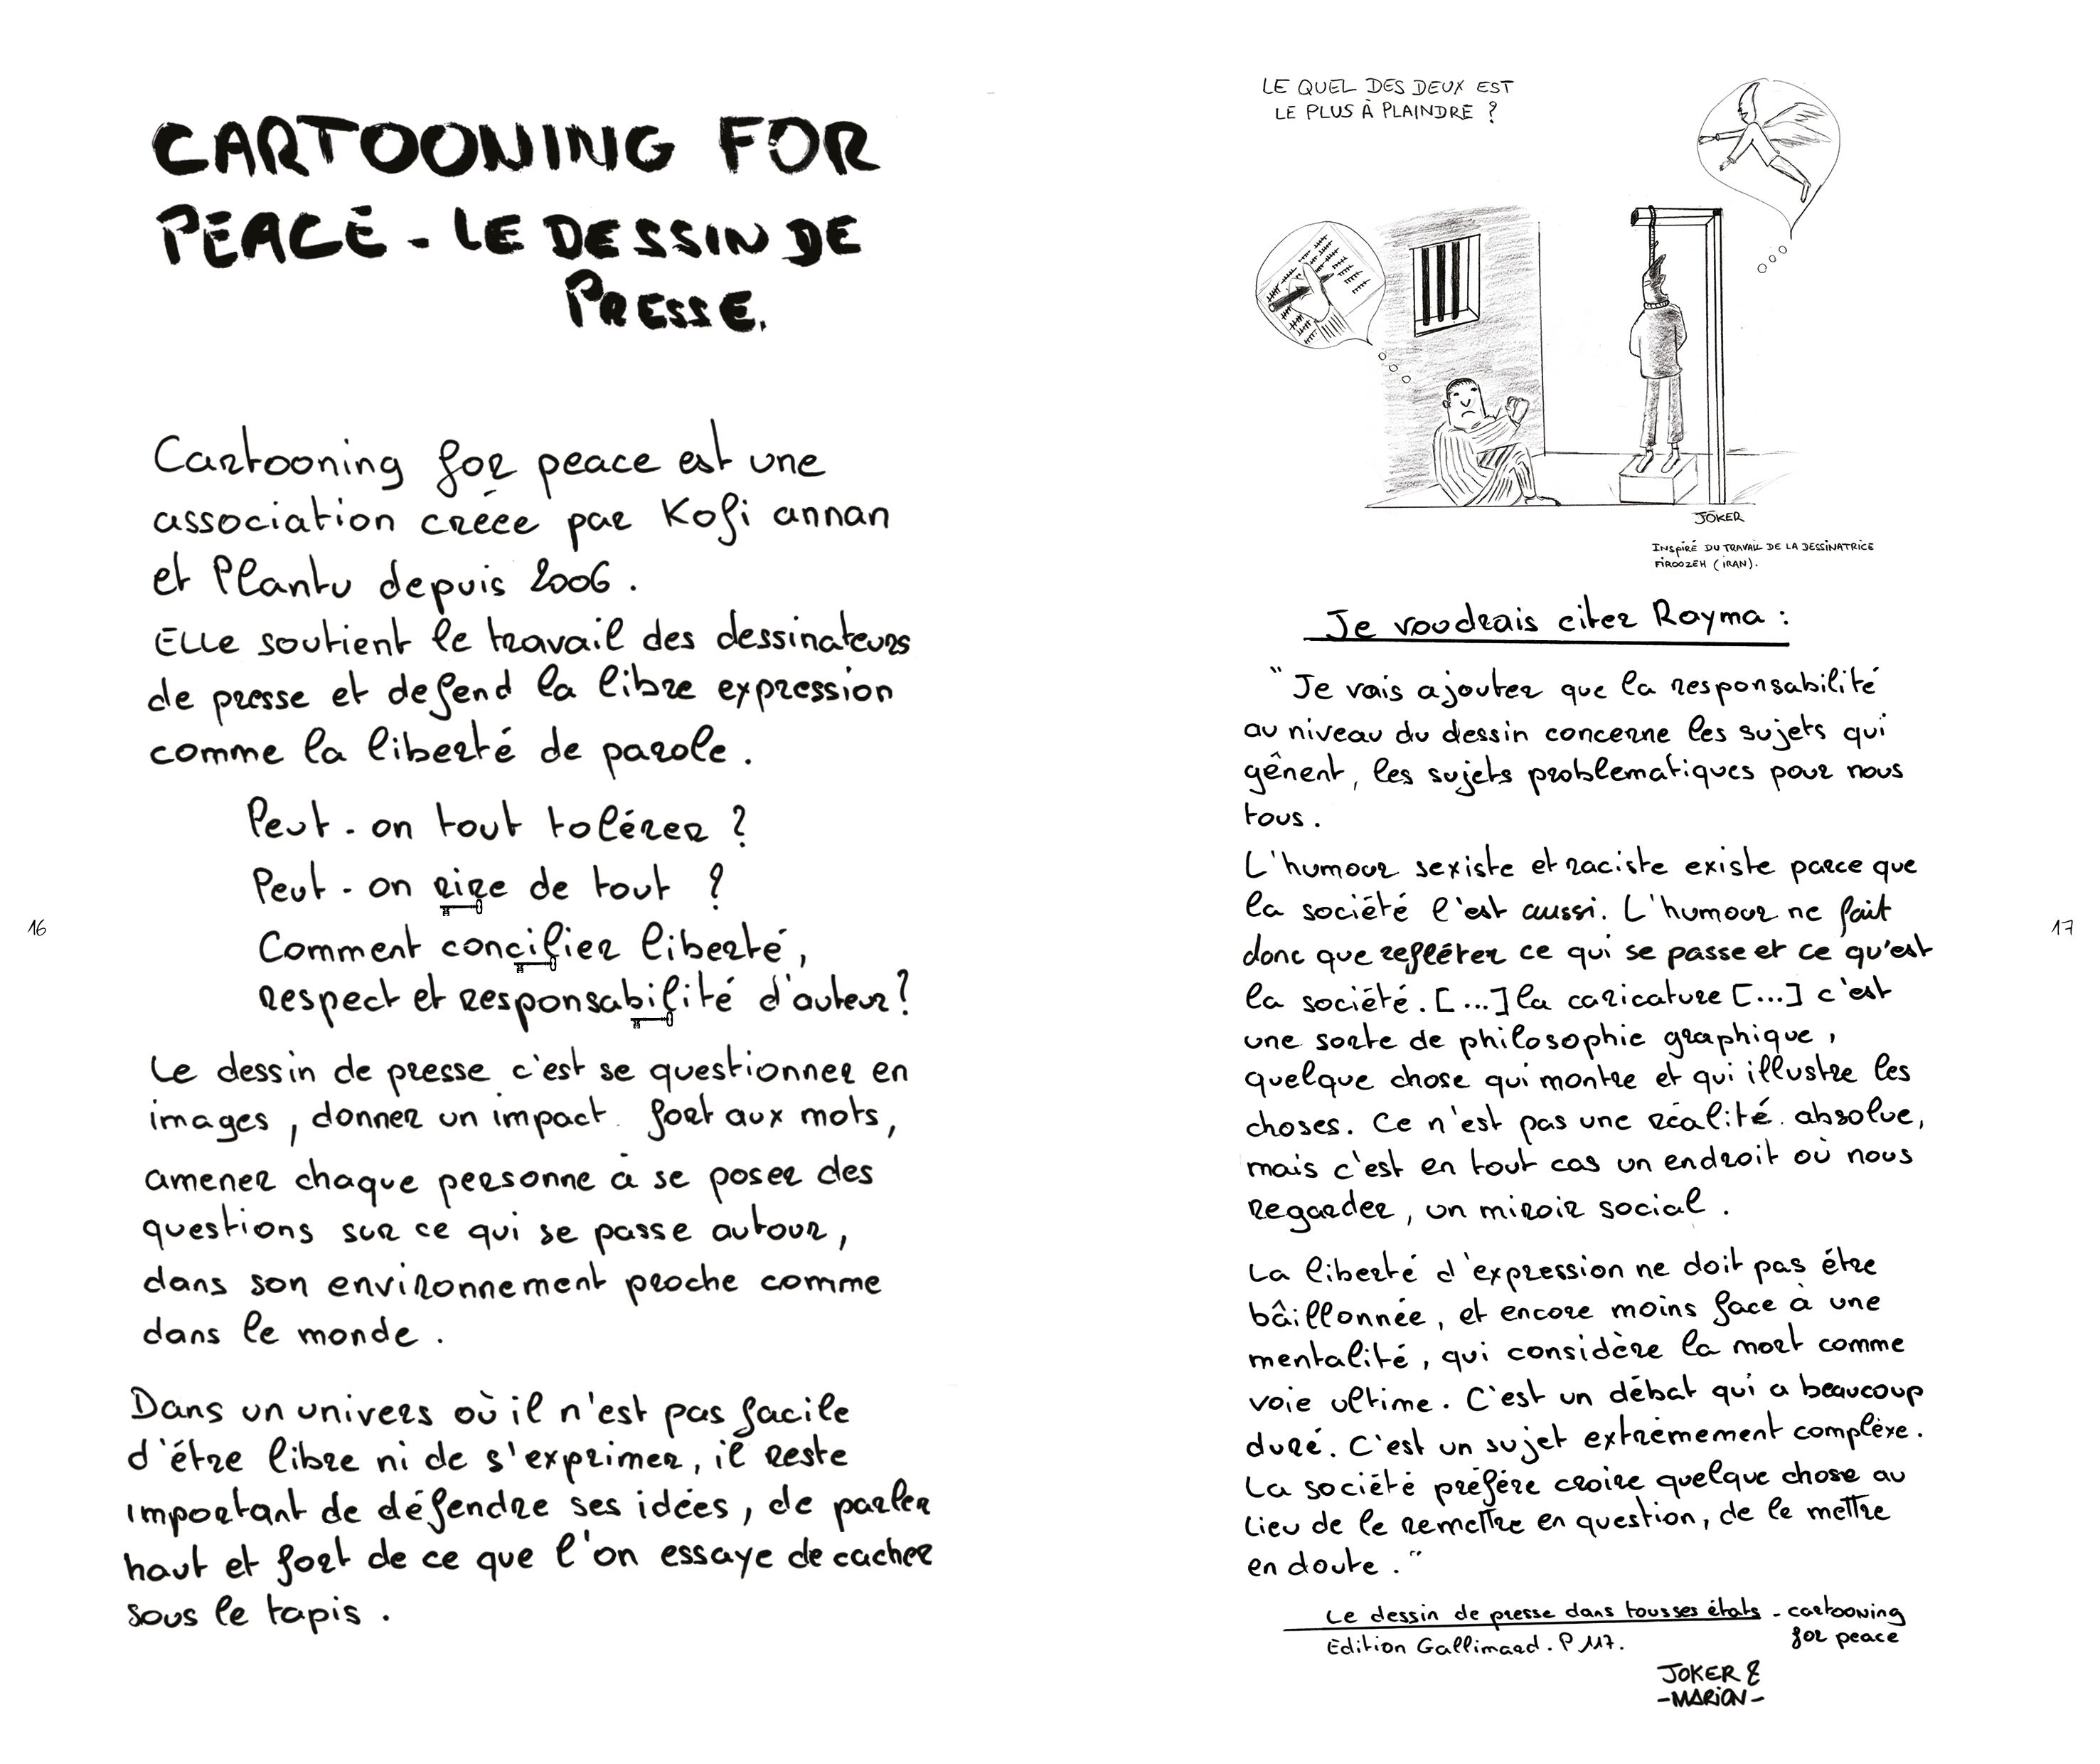 CARTOONING FOR
PEACE - LE DESSIN DE
PRESSE.
Cartooning for peace est une
association créée par Kofi annan
et Plantu depuis 2006.
Elle soutient le travail des dessinateurs
de presse et defend la libre expression
comme la liberté de parole.
Peut-on tout tolérer ?
Peut-on rire de tout ?
Comment concilier liberté,
respect et responsabilité d'auteur ?
Le dessin de presse c'est se questionner en
images, donner un impact fort aux mots,
amener chaque personne à se poser des
questions sur ce qui se passe autour,
dans son environnement proche comme
dans le monde.
Dans un univers où il n'est pas facile
d'être libre ni de s'exprimer, il reste
important de défendre ses idées, de parler
haut et fort de ce que l'on essaye de cacher
sous le tapis.
16
LE QUEL DES DEUX EST
LE PLUS À PLAINDRE ?
JOKER
INSPIRÉ DU TRAVAIL DE LA DESSINATRICE
FIROOZEH (IRAN).
Je voudrais citer Rayma :
"Je vais ajouter que la responsabilité
au niveau du dessin concerne les sujets qui
gênent, les sujets problematiques pour nous
tous.
L'humour sexiste et raciste existe parce que
la société l'est aussi. L'humour ne fait
donc que refléter ce qui se passe et ce qu'est
la société. [...] la caricature [...] c'est
une sorte de philosophie graphique,
quelque chose qui montre et qui illustre les
choses. Ce n'est pas une réalité absolue,
mais c'est en tout cas un endroit où nous
regarder, un miroir social.
La liberté d'expression ne doit pas être
bâillonnée, et encore moins face à une
mentalité, qui considère la mort comme
voie ultime. C'est un débat qui a beaucoup
duré. C'est un sujet extrêmement complèxe.
La société préfère croire quelque chose au
lieu de le remettre en question, de le mettre
en doute."
Le dessin de presse dans tous ses états - cartooning
for peace
Edition Gallimard. P 117.
JOKER &
-MARION-
17